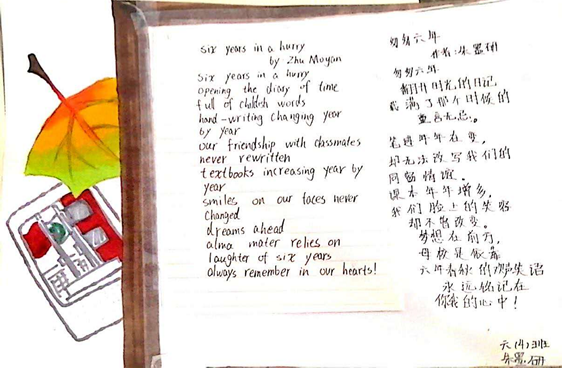 six years in a hurry
by Zhu Moyan
Six years in a hurry
opening the diary of time
full of childish words
hand-writing changing year
by year
our friendship with classmates
never rewritten
textbooks increasing year by
year
smiles on our faces never
changed
dreams ahead
alma mater relies on
laughter of six years
always remember in our hearts!
匆匆六年
作者:朱墨研
匆匆六年
翻开时光的日记
载满了那个时候的
童言无忌。
笔迹年年在变,
却无法改写我们的
同窗情谊。
课本年年增多,
我们脸上的笑容
却不曾改变。
梦想在前方,
母校是依靠
六年春秋的欢声笑语
永远铭记在
你我的心中!
六(4)班
朱墨研